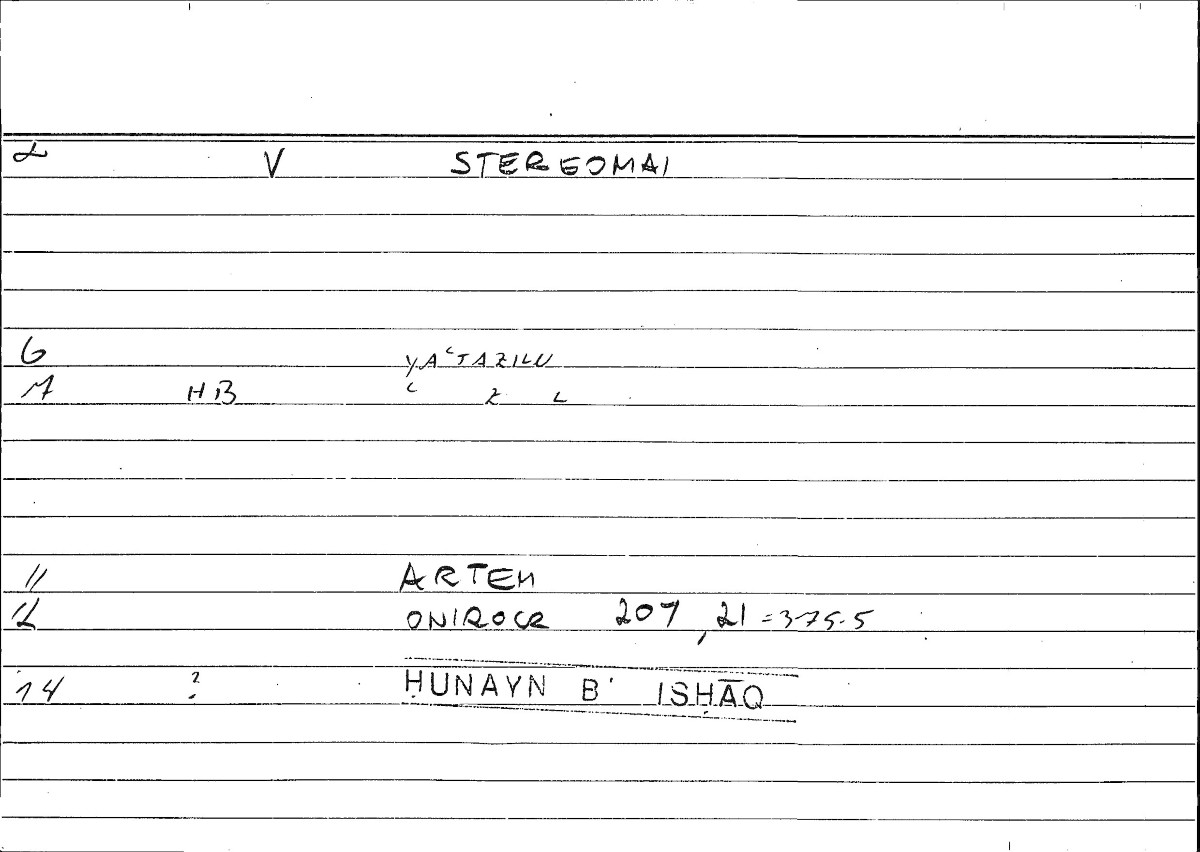 α V STEREOMAI
6 YAʿTAZILU
7 HB ʿ Z L
11 ARTEM
12 ONIROCR 207, 21 = 375.5
14 ? ḤUNAYN B' ISḤĀQ